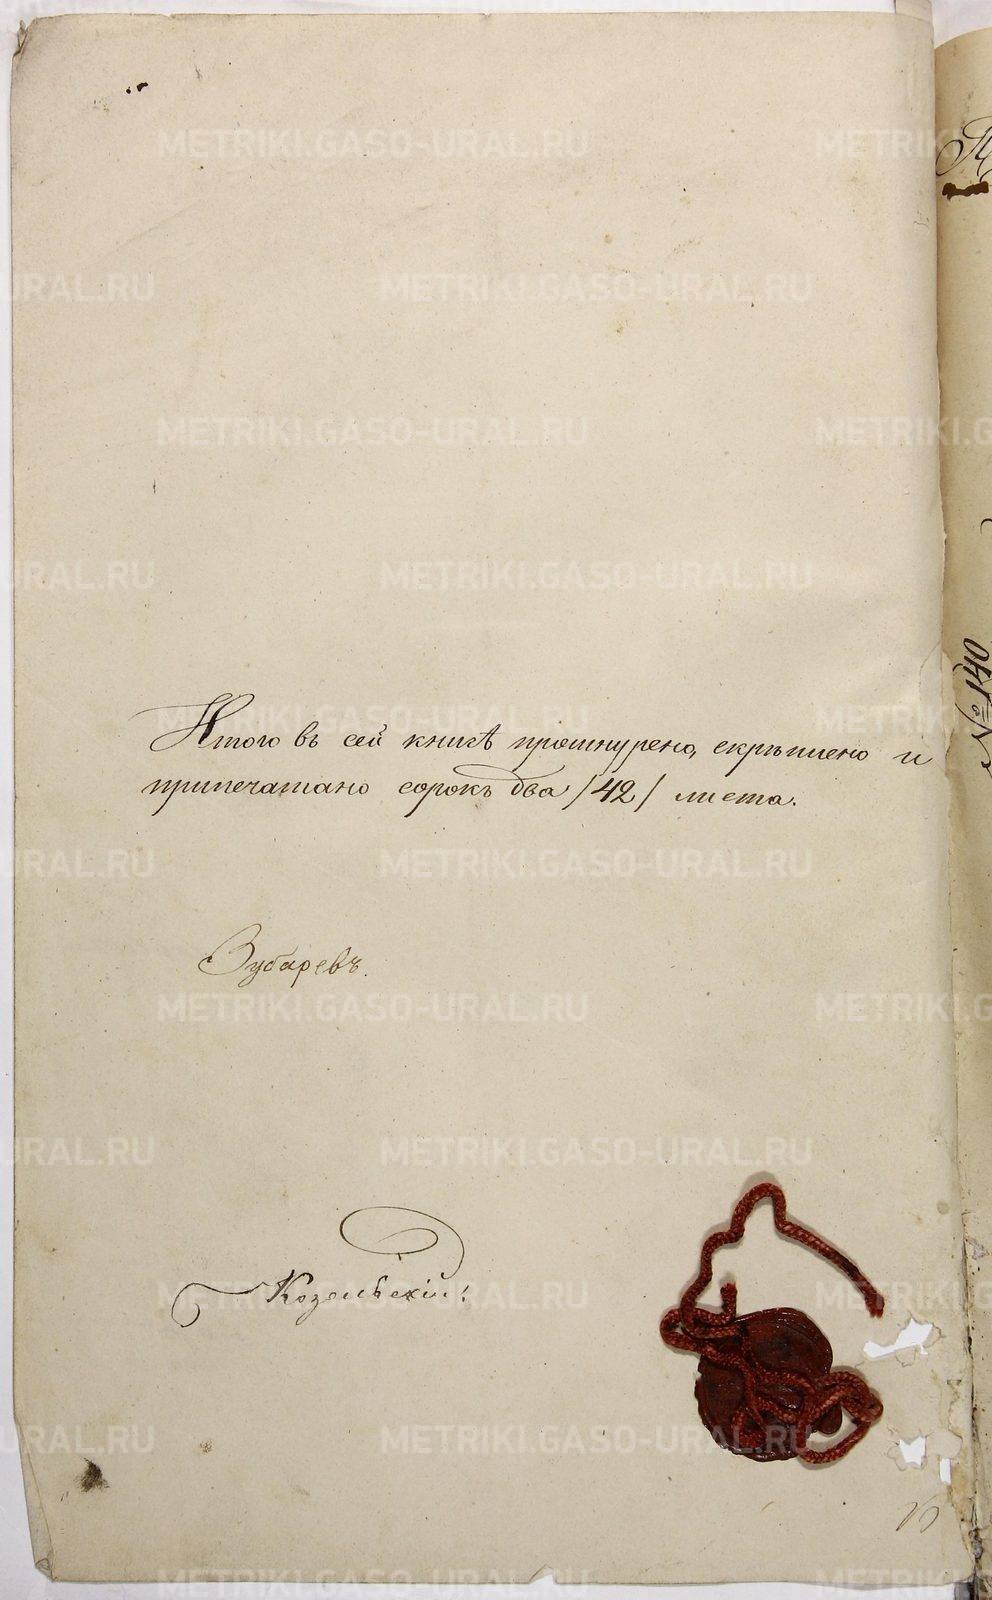 Итого въ сей книгѣ прошнурено, скрѣплено и
припечатано сорокъ два /42/ листа.
Зубаревъ.
Козельскій.
METRIKI.GASO-URAL.RU